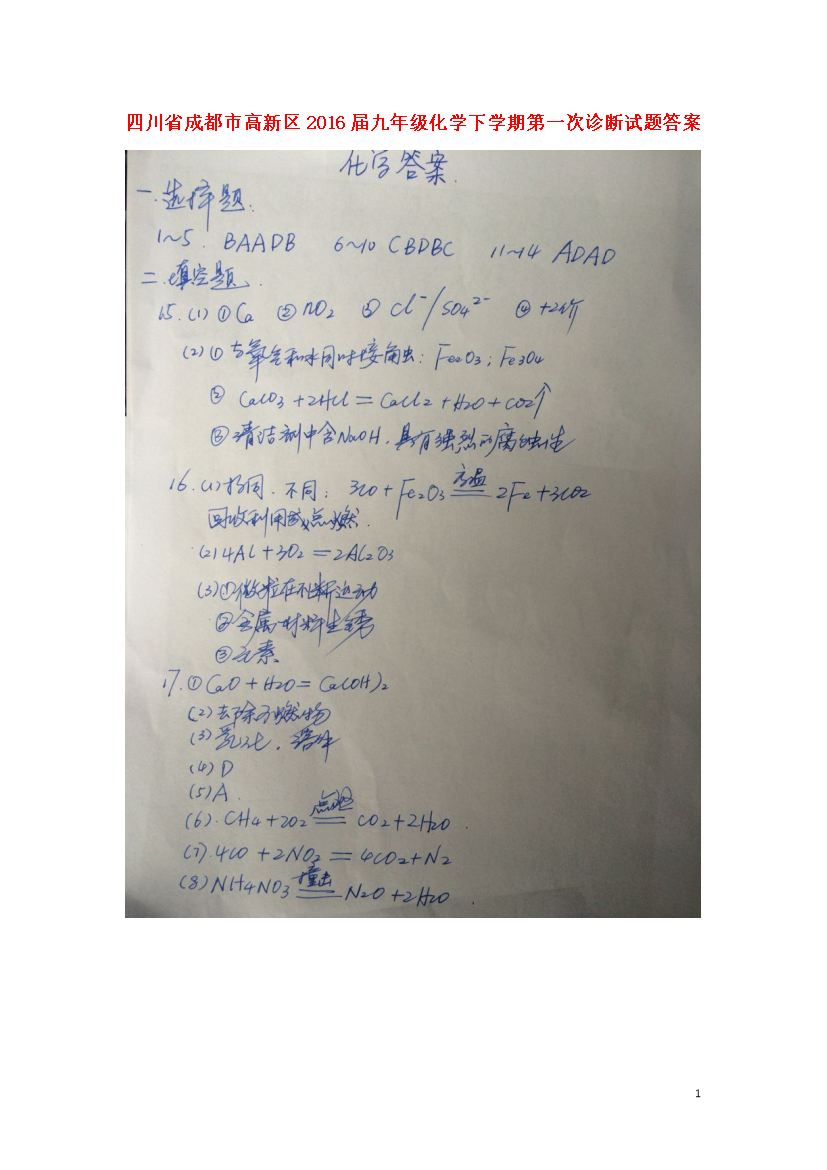 四川省成都市高新区2016届九年级化学下学期第一次诊断试题答案
化学答案.
一.选择题.
1~5. BAADB 6~10 CBDBC 11~14 ADAD
二.填空题.
15.(1)①Ca ②NO2 ③Cl⁻/SO4²⁻ ④+2价
(2)①与氧气和水同时接触; Fe2O3; Fe3O4
② CaCO3+2HCl=CaCl2+H2O+CO2↑
③清洁剂中含NaOH,具有强烈的腐蚀性
16.(1)相同.不同; 3CO+Fe2O3 高温 2Fe+3CO2
回收利用或点燃.
(2)4Al+3O2=2Al2O3
(3)①微粒在不断运动
②金属材料生锈
③元素
17.①CaO+H2O=Ca(OH)2
(2)去除可燃物
(3)乳化,溶解
(4)D
(5)A.
(6).CH4+2O2 点燃 CO2+2H2O.
(7).4CO+2NO2=4CO2+N2
(8)NH4NO3 撞击 N2O+2H2O.
1